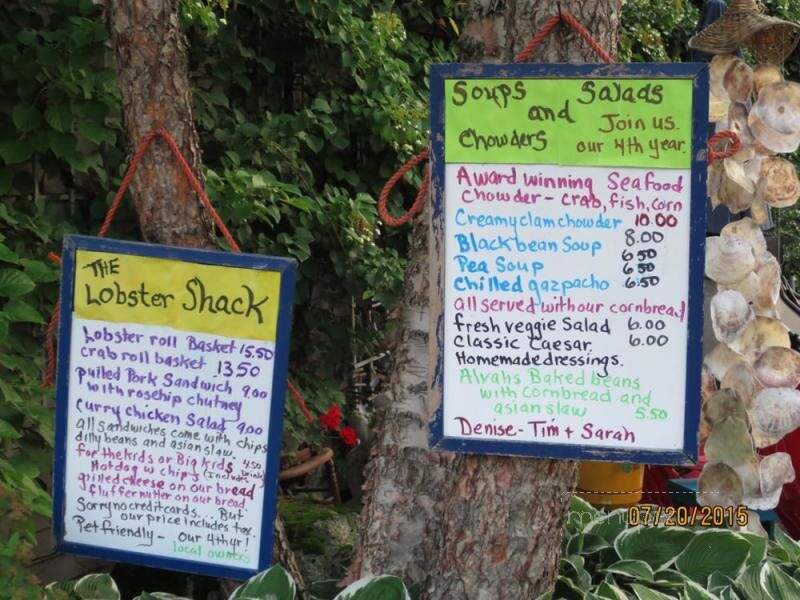 THE
Lobster Shack
Lobster roll Basket 15.50
crab roll basket 13.50
pulled Pork Sandwich 9.00
with rosehip chutney
Curry chicken Salad 9.00
all sandwiches come with chips
dilly beans and asian slaw.
for the kids or Big kids 4.50
Hotdog w chips (includes drink)
grilled cheese on our bread
fluffernutter on our bread
Sorry no credit cards... But
our price includes tax.
Pet friendly - our 4th yr!
local owners
Soups and Salads
Chowders Join us.
our 4th year.
Award winning Seafood
Chowder - crab, fish, corn
10.00
Creamy clam chowder 8.00
Black bean Soup 6.50
Pea Soup 6.50
Chilled gazpacho 6.50
all served with our cornbread
fresh veggie Salad 6.00
Classic Caesar 6.00
Homemade dressings.
Alvahs Baked beans
with Cornbread and
asian slaw 5.50
Denise - Tim + Sarah
07/20/2015